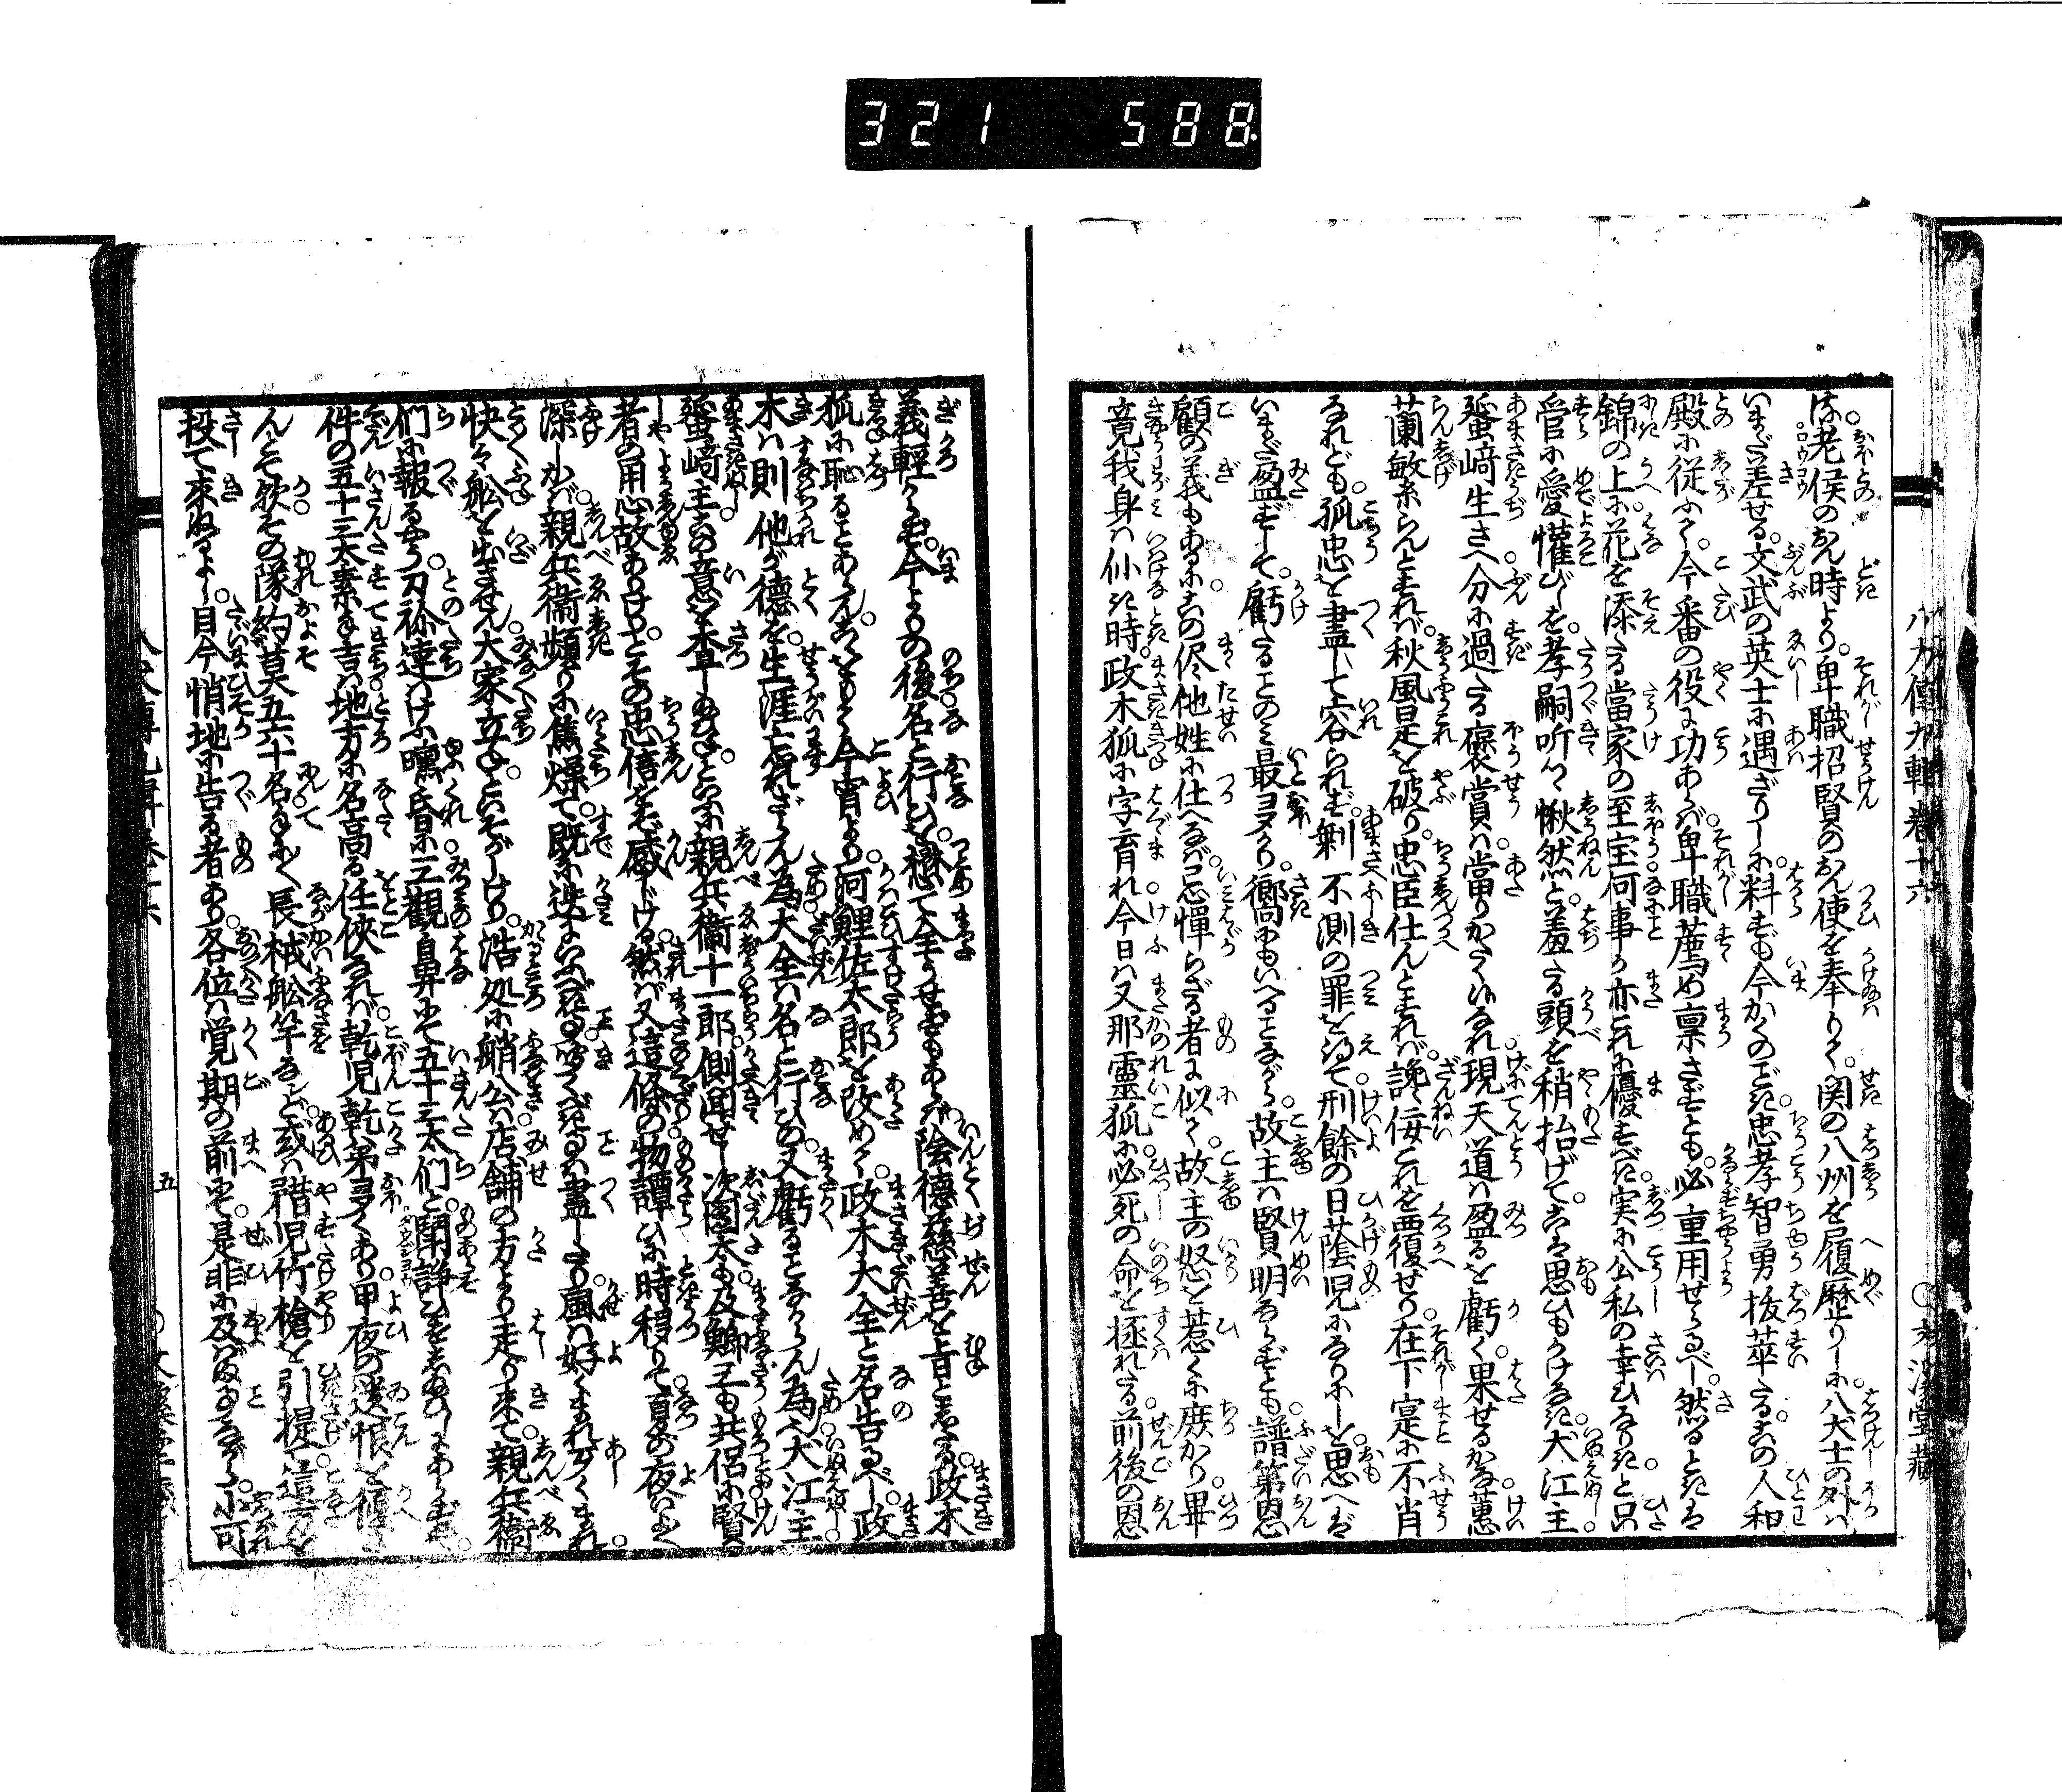 321 588
八犬傳九輯巻十六
○文溪堂藏
は老侯のおん時より。卑職招賢のおん使を奉りて。関の八州を履歴りしに。八犬士の外は
いまだ差せる。文武の英士に遇ざりしに。料ずも今かくのごとき。忠孝智勇抜萃たる。この人和
殿に従ふて。今番の役に功あらば。卑職薦め稟さずとも。必重用せらるべし。然るときは
錦の上に花を添たる當家の至宝。何事か亦これに優すべき。実に公私の幸ひなりき。と只
管に愛懽びしを。孝嗣听て愀然と。羞たる頭を稍抬げて。こは思ひもかけなき。犬江主
蜑﨑生さへ分に過たる褒賞は。當りがたくはべるなれ。現天道は盈るを虧く。果せるかな蕙
蘭敏系らんとすれば。秋風是を破り。忠臣仕んとすれば。讒佞これを覆せり。在下寔に不肖
なれども。孤忠を盡して容られず。剰不測の罪を得て。刑餘の日蔭児になりにしを思へば。
いまだ盈ずして。虧たることのみ最多かり。嚮にもいへることながら。故主は賢明ならずとも。譜第恩
顧の義もあるに。この侭他姓に仕へなば。忌憚らざる者に似て。故主の怒を惹くに庶かり。畢
竟我身は仏き時。政木狐に字育れ。今日は又那霊狐に。必死の命を拯れたる。前後の恩
義軽からず。今よりの後名と行ひを。懋て全うせまくもあらば。陰徳慈善を旨とすなる。政木
狐に恥ることあらん。こをもて今宵より。河鯉佐太郎を改めて。政木大全と名告るべし。政
木は則他が徳を。生涯忘れざらん為。大全は名と行ひの。又虧ることなからん為。犬江主
蜑﨑主この意を本早しめさね。といふに親兵衞十一郎。側聞せし次團太も及鯽三も。共侶に賢
者の用心故ありけり。とその忠信をぞ感じける。然ば又這條の物譚に時移りて。夏の夜いたく
深しかば。親兵衞頻りに焦燥て。既に迭にいふべき事。聞くべきことは盡したり。風は好まれ歹くまれ。
快々船を出させん。大家立ね。といそがしけり。浩処に艄公は店舗の方より走り来て。親兵衞
們に報るやう。刀祢達はけふ曛昏に。三観鼻にて五十三太們と。鬧諍ひをしぬるにあらずや。
件の五十三太素手吉は地方に名高る任侠なれば。乾児乾弟多くあり。甲夜の遺恨を復
んとて欤。その隊約莫五六十名可。長棫船竿なんど。或は楷児竹槍を引提て。這方を
投て來ぬるよし。目今悄地に告る者あり。各位は覚期の前にて。是非に及ばぬ事ながら。小可
五